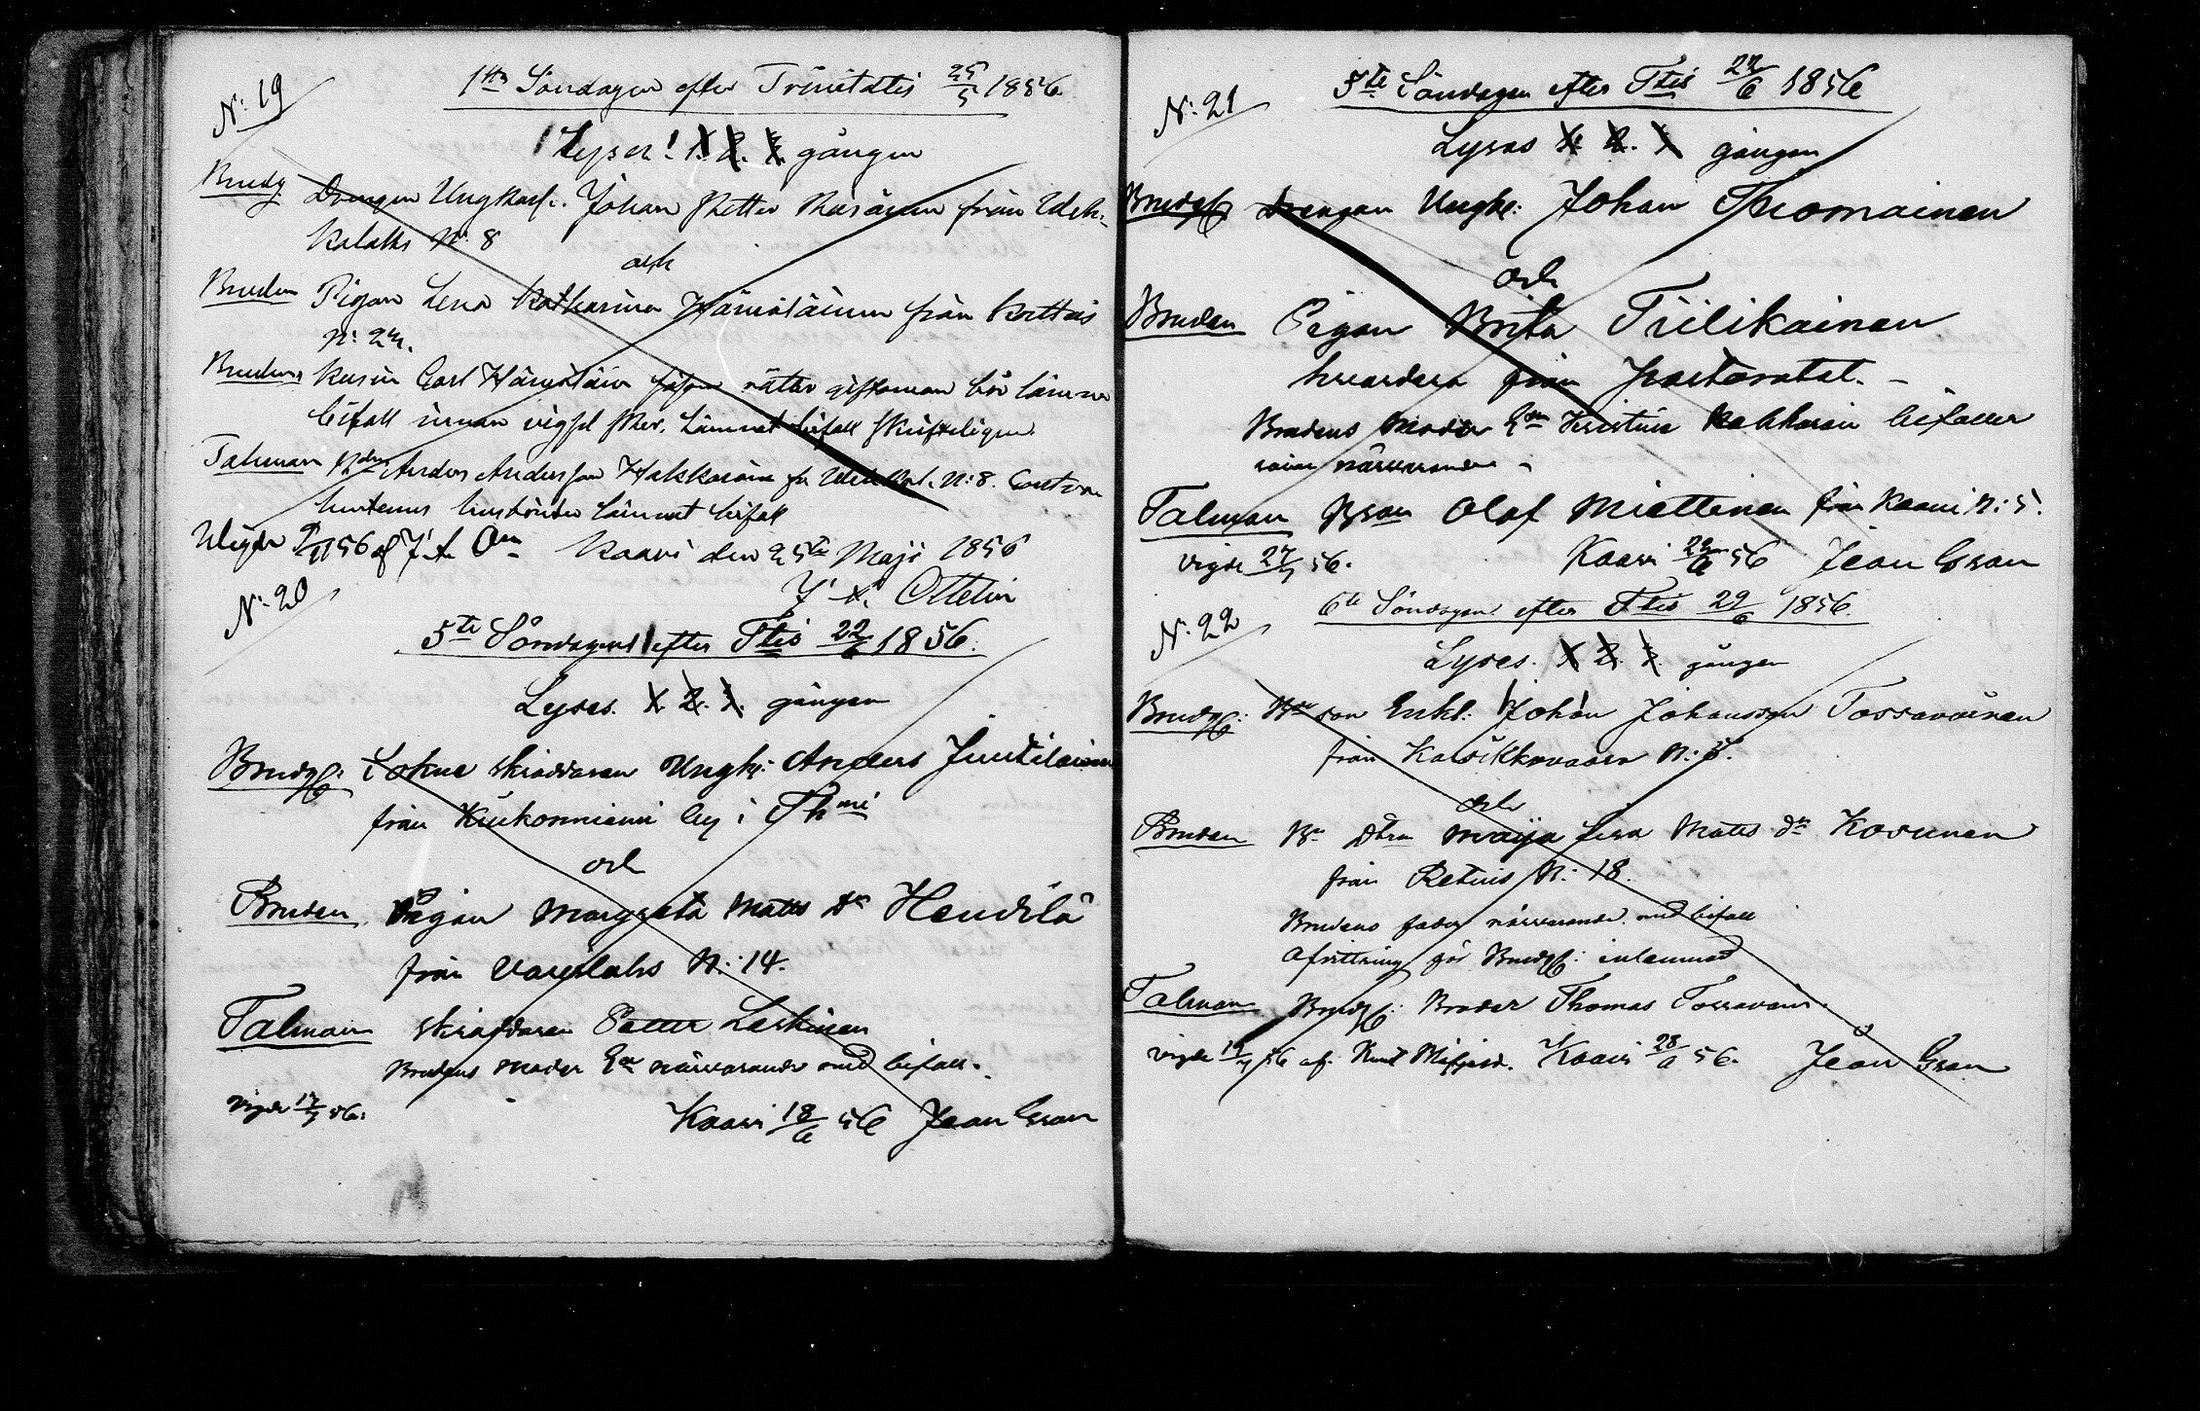 N: 19
1sta Söndagen efter Trinitatis 25/5 1856.
Lyses! 1. 2. 3. gången
Brudg Drengen Ungkarl. Johan Petter Räsänen från Weh-
kalaks N: 8
och
Bruden Pigan Lena Katharina Hämäläinen från Rettuis
N: 24.
Brudens Kusin Carl Hämäläin såsom rätter giftoman bör lämna
bifall innan vigsel sker. Lämnat bifall skrifteligen.
Talman Anders Andersson Hakkarain fr Weh kal. N: 8.
husbönder lämnat bifall
Wigde 56 af J. A. On Kaavi den 25te Maji 1856
J. A. Ottelin
N: 20
5te Söndagen efter Ttis 22/6 1856.
Lyses. 1. 2. 3. gången
Brudg: Sokne skräddaren Ungk: Anders Juutilainen
från Kiukonniemi by i
och
Bruden Pigan Margreta Matts dr Hendilä
från Varislahs N: 14.
Talman skräddaren Petter Leskinen
Brudens moder Ea närvarande med bifall.
Vigde 17/7 56.
Kaavi 18/6 56 Jean Gran
N: 21
5te Söndagen efter Ttis 22/6 1856
Lyses 1. 2. 3. gången
Brudg Drengen Ungk: Johan Thomainen
och
Bruden Pigan Brita Tiilikainen
hvardera från Pastoratet. -
Brudens Moder Enn Kristin bifaller
närvarande -
Talman Bson Olof Miettinen från Kaavi N: 5.
Vigde 27/7 56. Kaavi 22/6 56 Jean Gran
N: 22
6te Söndagen efter Ttis 29/6 1856.
Lyses. 1. 2. 3. gången
Brudg: Bde son Enkl: Johan Johansson Tossavainen
från Kalsikkovaara N: 3.
och
Bruden Be Dtrn Maija Lisa Matts dr Kosunen
från Retuis N: 18.
Brudens fader närvarande med bifall
Afvittring för Brudg: inlemnad
Talman Brudg: Broder Thomas Tossavain.
Vigde 56 af Kaavi 28/6 56. Jean Gran